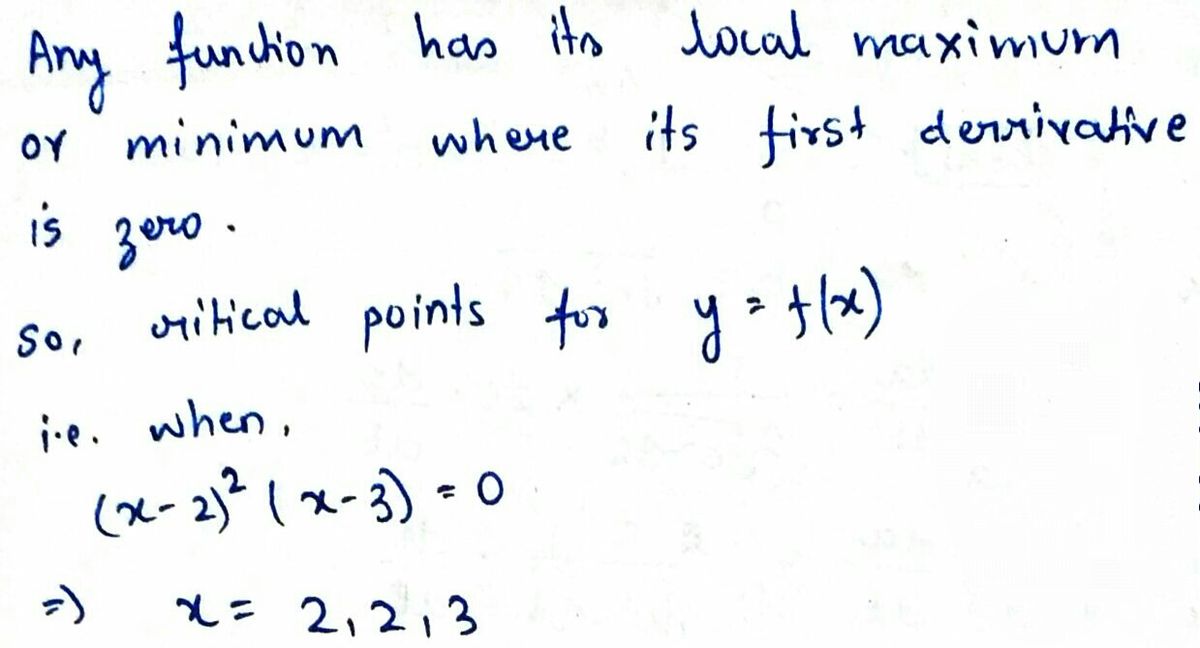 Any function has its local maximum
or minimum where its first derrivative
is zero.
So, critical points for y = f(x)
i.e. when,
(x-2)² (x-3) = 0
=) x = 2, 2, 3